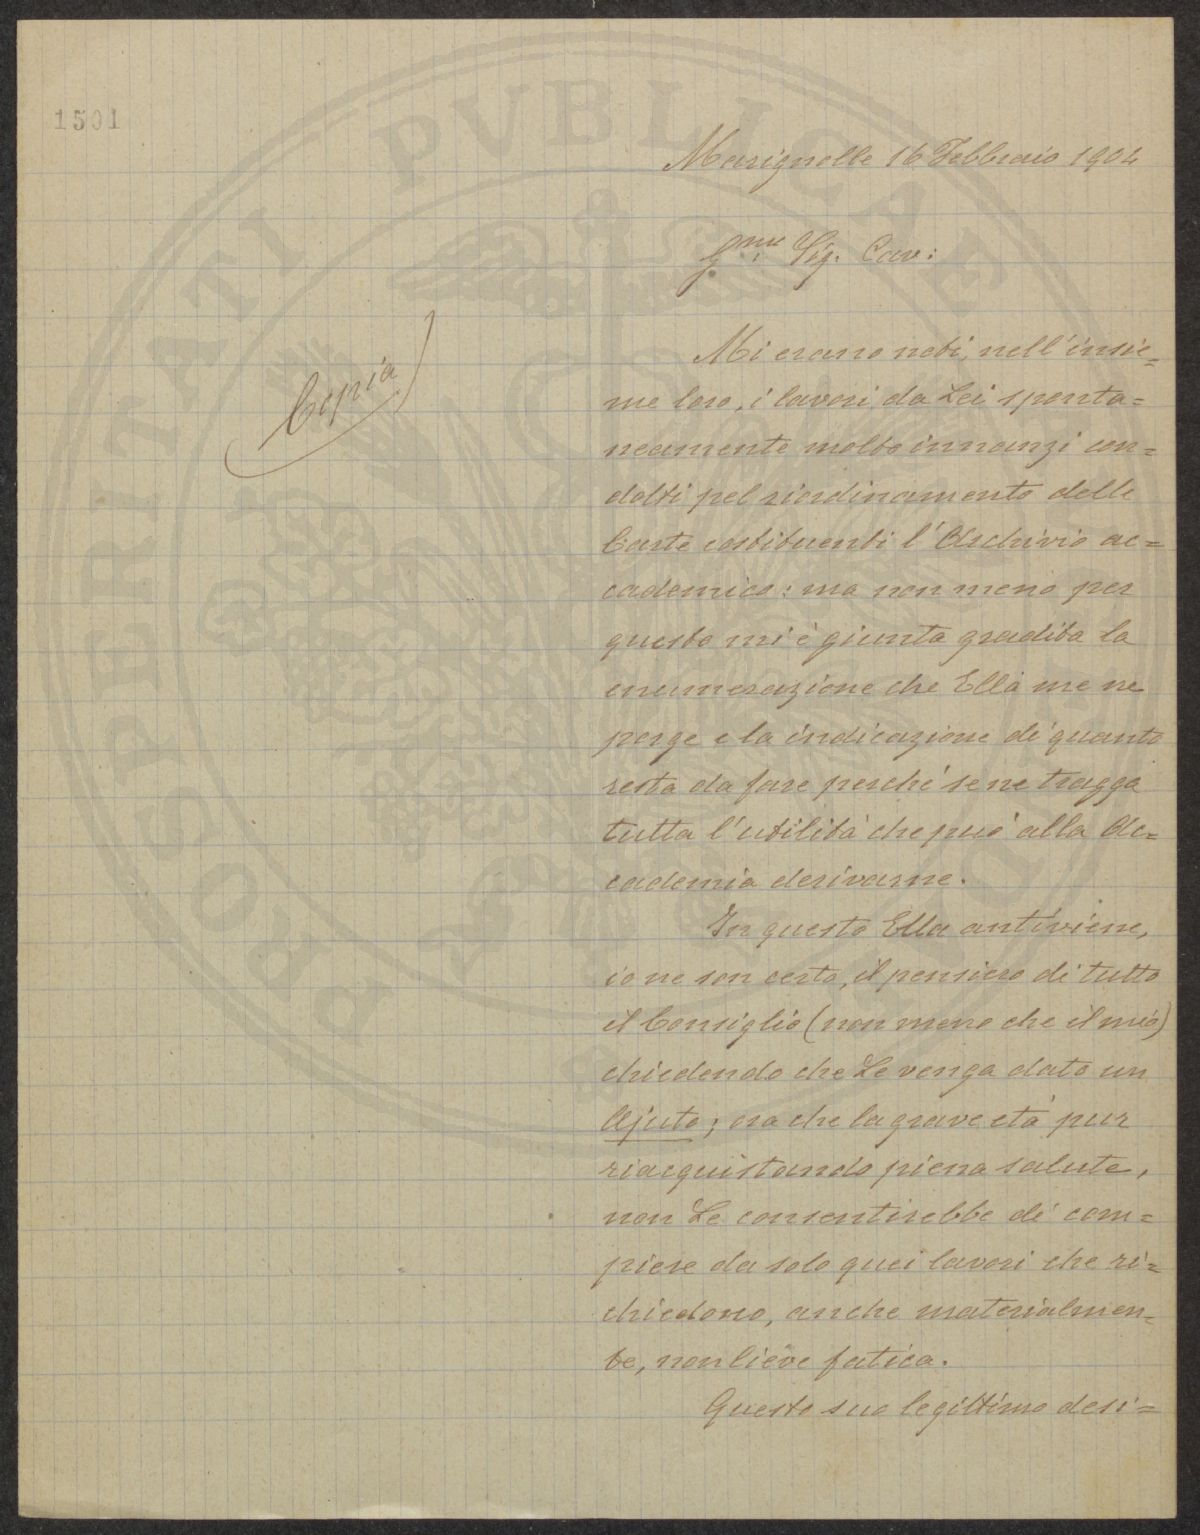 1501
Marignolle 16 Febbraio 1904
G.mo Sig. Cav:
Copia
Mi erano noti, nell'insie=
me loro, i lavori da Lei sponta=
neamente molto innanzi con=
dotti pel riordinamento delle
Carte costituenti l'Archivio ac=
cademico: ma non meno per
questo mi è giunta gradita la
enumerazione che Ella me ne
porge e la indicazione di quanto
resta da fare perché se ne tragga
tutta l'utilità che può alla Ac=
cademia derivarne.
In questo Ella antiviene,
io ne son certo, il pensiero di tutto
il Consiglio (non meno che il mio)
chiedendo che Le venga dato un
Ajuto; ora che la grave età pur
riacquistando piena salute,
non Le consentirebbe di com=
piere da solo quei lavori che ri=
chiedono, anche materialmen=
te, non lieve fatica.
Questo suo legittimo desi=
PROSPERITATI PUBLICAE